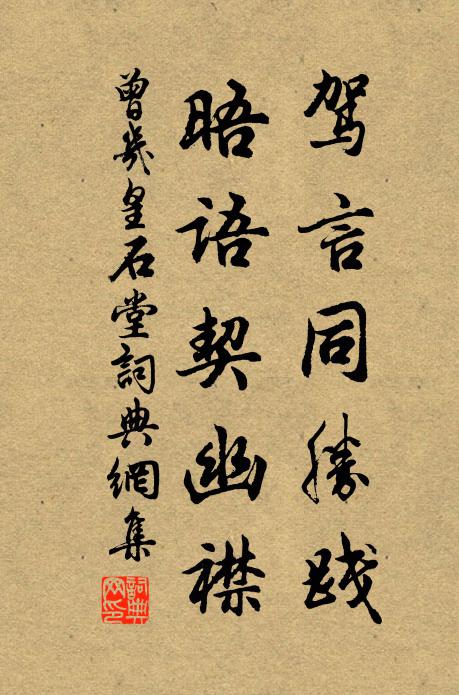 驾言同勝践
晤语契幽襟
曾幾皇石堂詞典網集
詞典网印